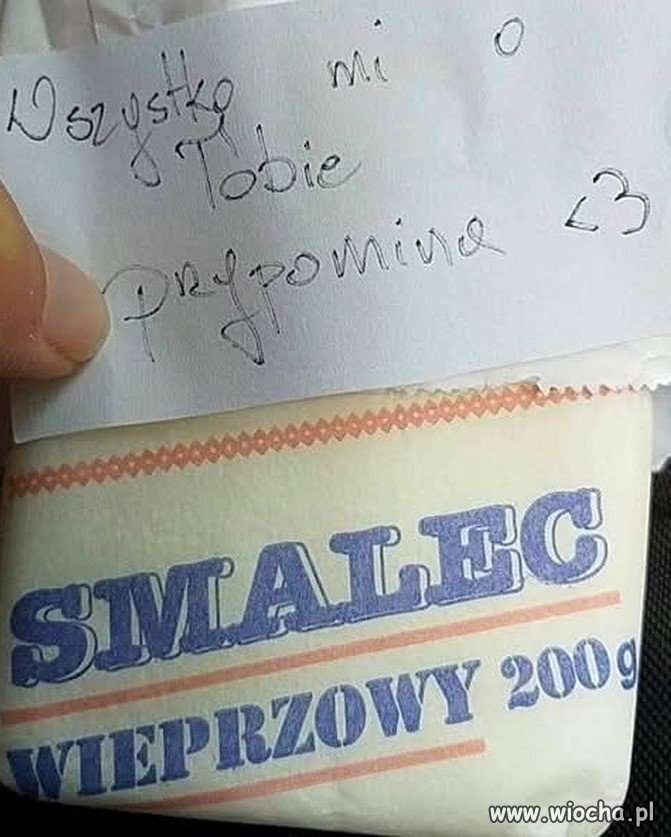 Wszystko mi o
Tobie
przypomina <3
SMALEC
WIEPRZOWY 200g
www.wiocha.pl